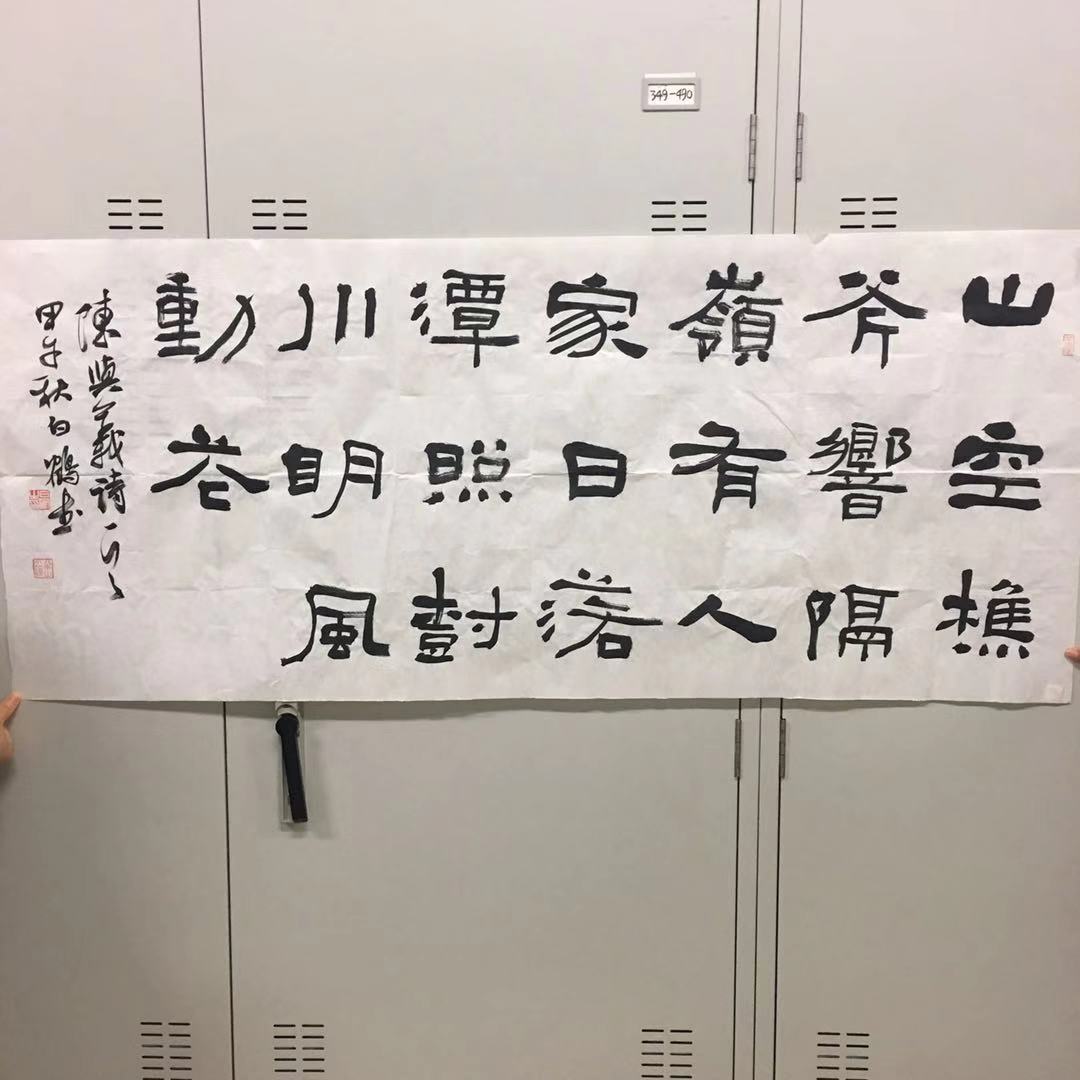 349-490
山空樵
斧響隔
嶺有人
家日落
潭照樹
川明風
動花
陳與義詩一首
甲午秋白鶴書